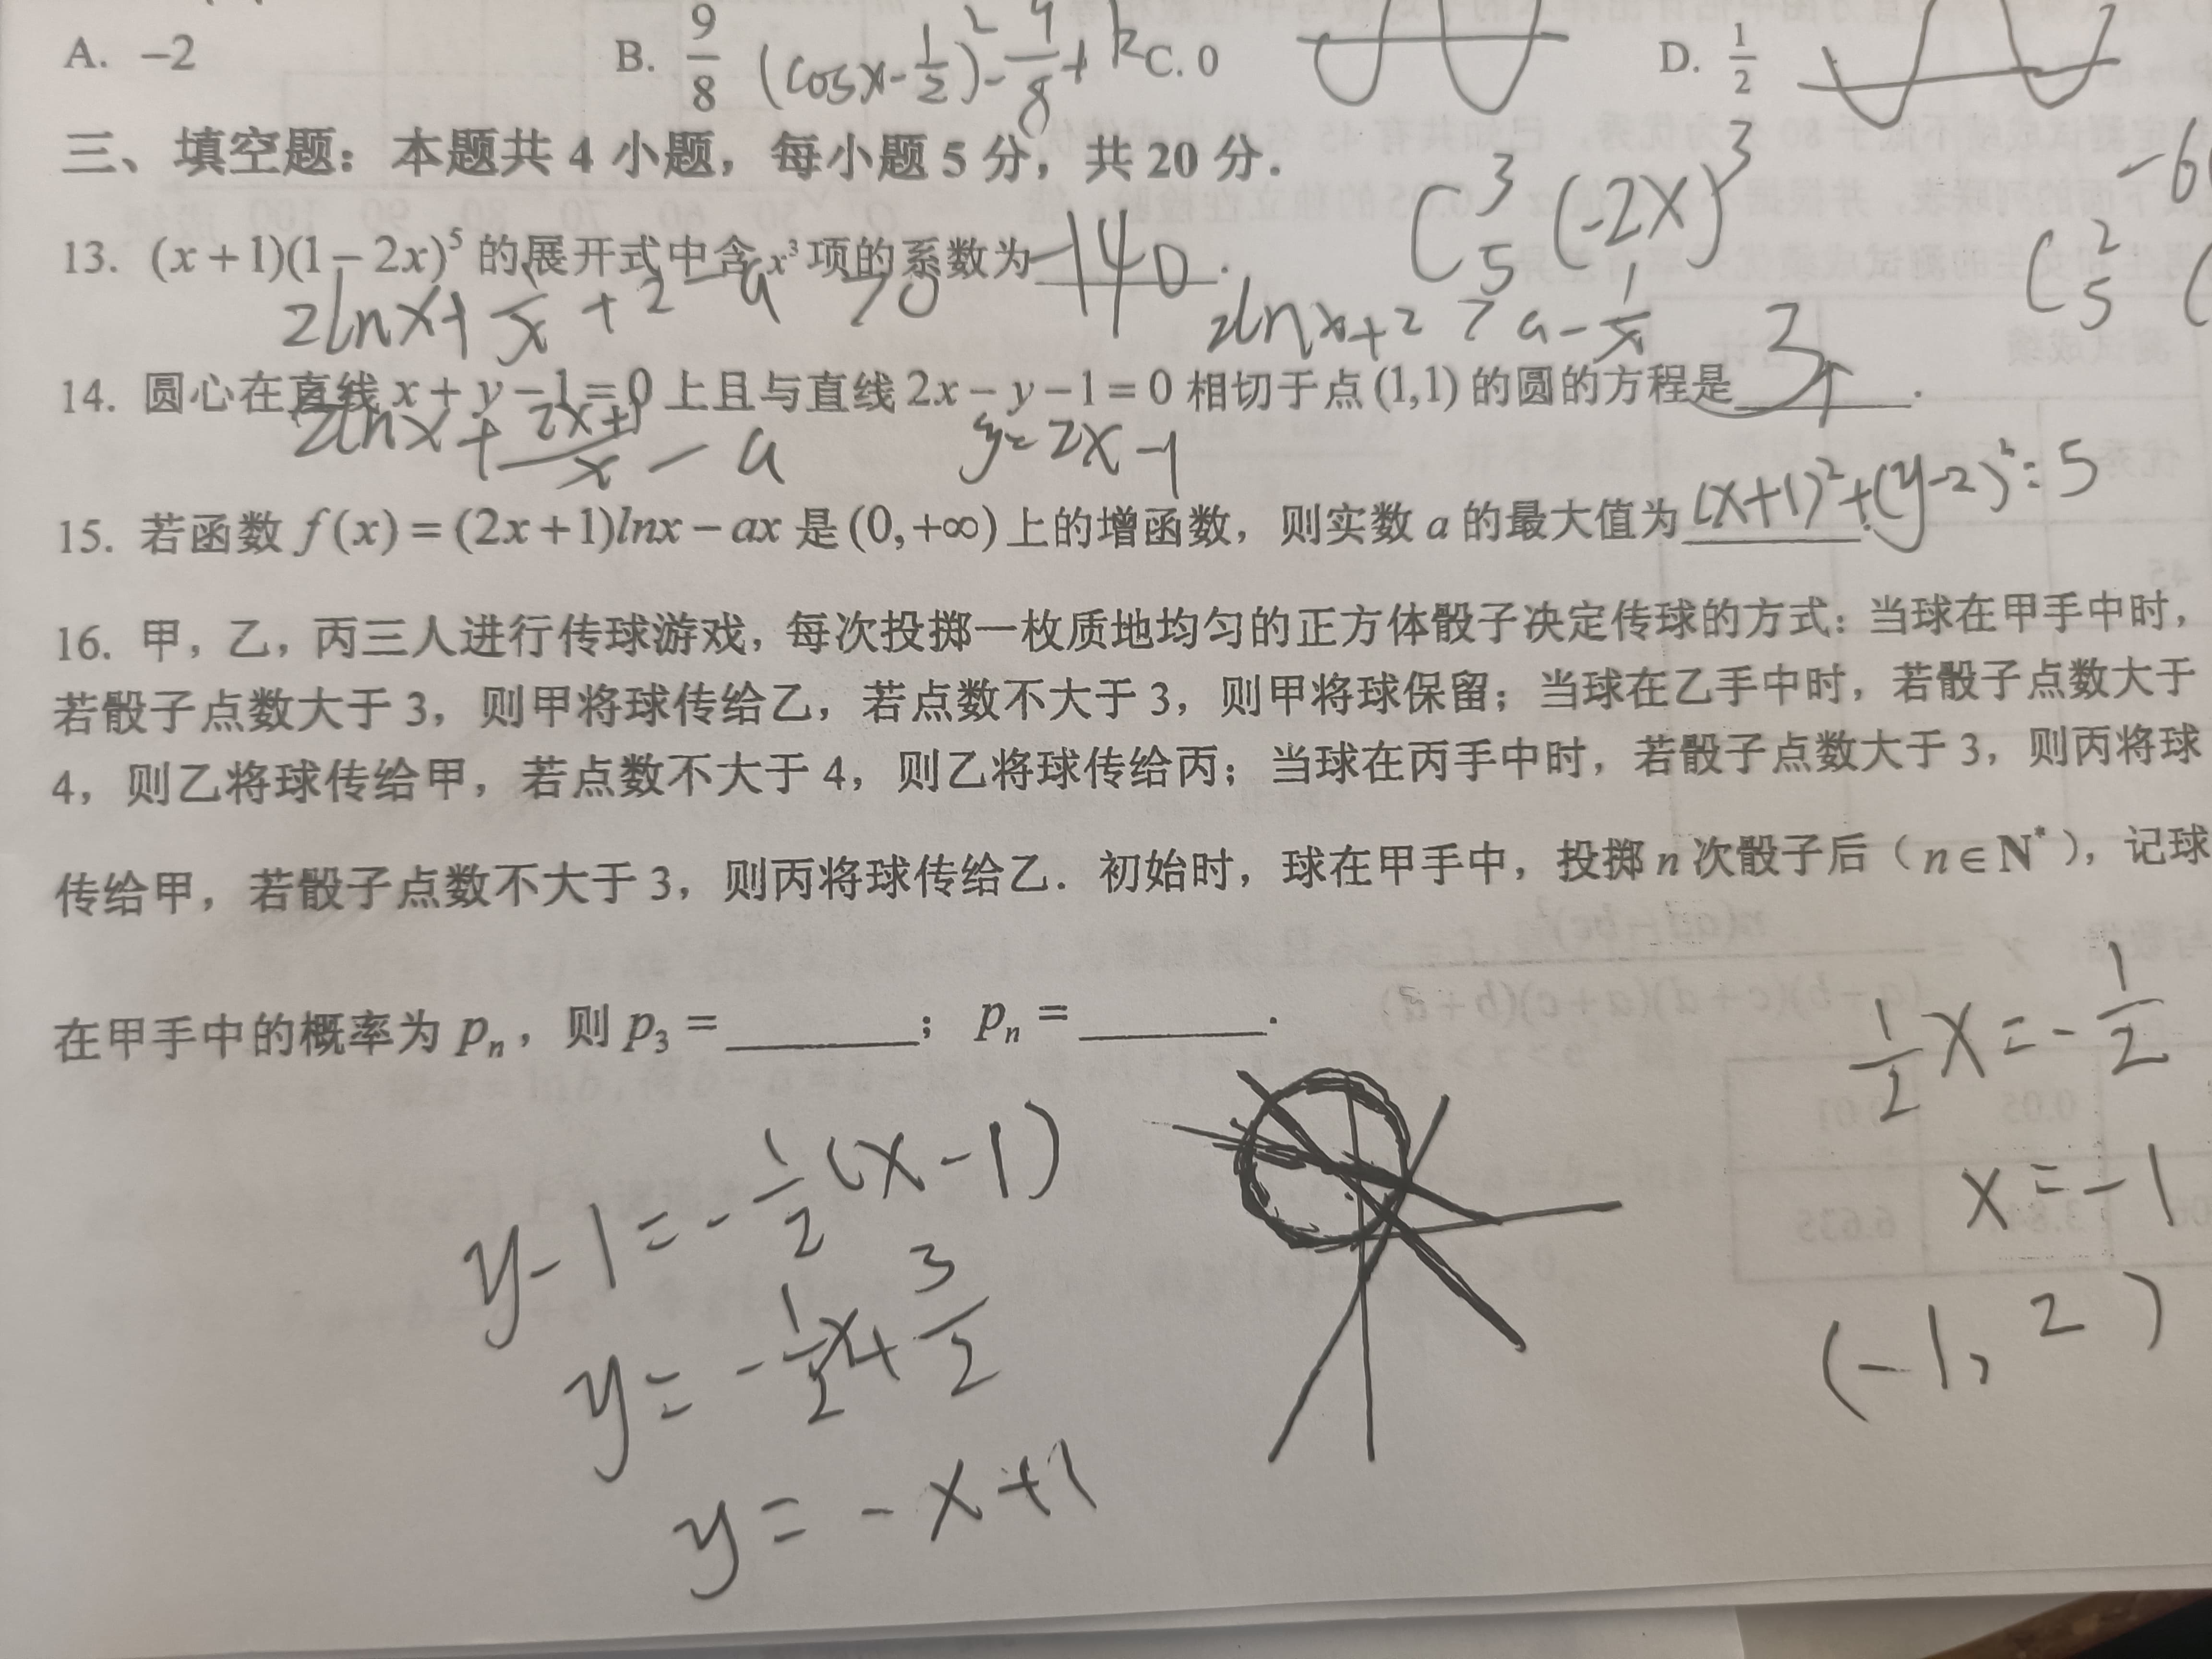 A. −2 B. 9/8 (cosx-1/2)²-9/8+k C. 0 D. 1/2
三、填空题：本题共 4 小题，每小题 5 分，共 20 分.
C₅³(-2x)³
13. (x+1)(1−2x)⁵ 的展开式中含 x³ 项的系数为 -140 .
C₅²
2lnx+1/x+2-a>0 2lnx+2>a-1/x
14. 圆心在直线 x+y−1=0 上且与直线 2x−y−1=0 相切于点 (1,1) 的圆的方程是 .
2lnx+(2x+1)/x-a y=2x-1
15. 若函数 f(x)=(2x+1)lnx−ax 是 (0,+∞) 上的增函数，则实数 a 的最大值为 (x+1)²+(y-2)²=5 .
16. 甲，乙，丙三人进行传球游戏，每次投掷一枚质地均匀的正方体骰子决定传球的方式：当球在甲手中时，
若骰子点数大于 3，则甲将球传给乙，若点数不大于 3，则甲将球保留；当球在乙手中时，若骰子点数大于
4，则乙将球传给甲，若点数不大于 4，则乙将球传给丙；当球在丙手中时，若骰子点数大于 3，则丙将球
传给甲，若骰子点数不大于 3，则丙将球传给乙．初始时，球在甲手中，投掷 n 次骰子后（n∈N*），记球
在甲手中的概率为 pₙ，则 p₃ = ； pₙ = .
1/2x=-1/2
x=-1
(-1, 2)
y-1=-1/2(x-1)
y=-1/2x+3/2
y=-x+1